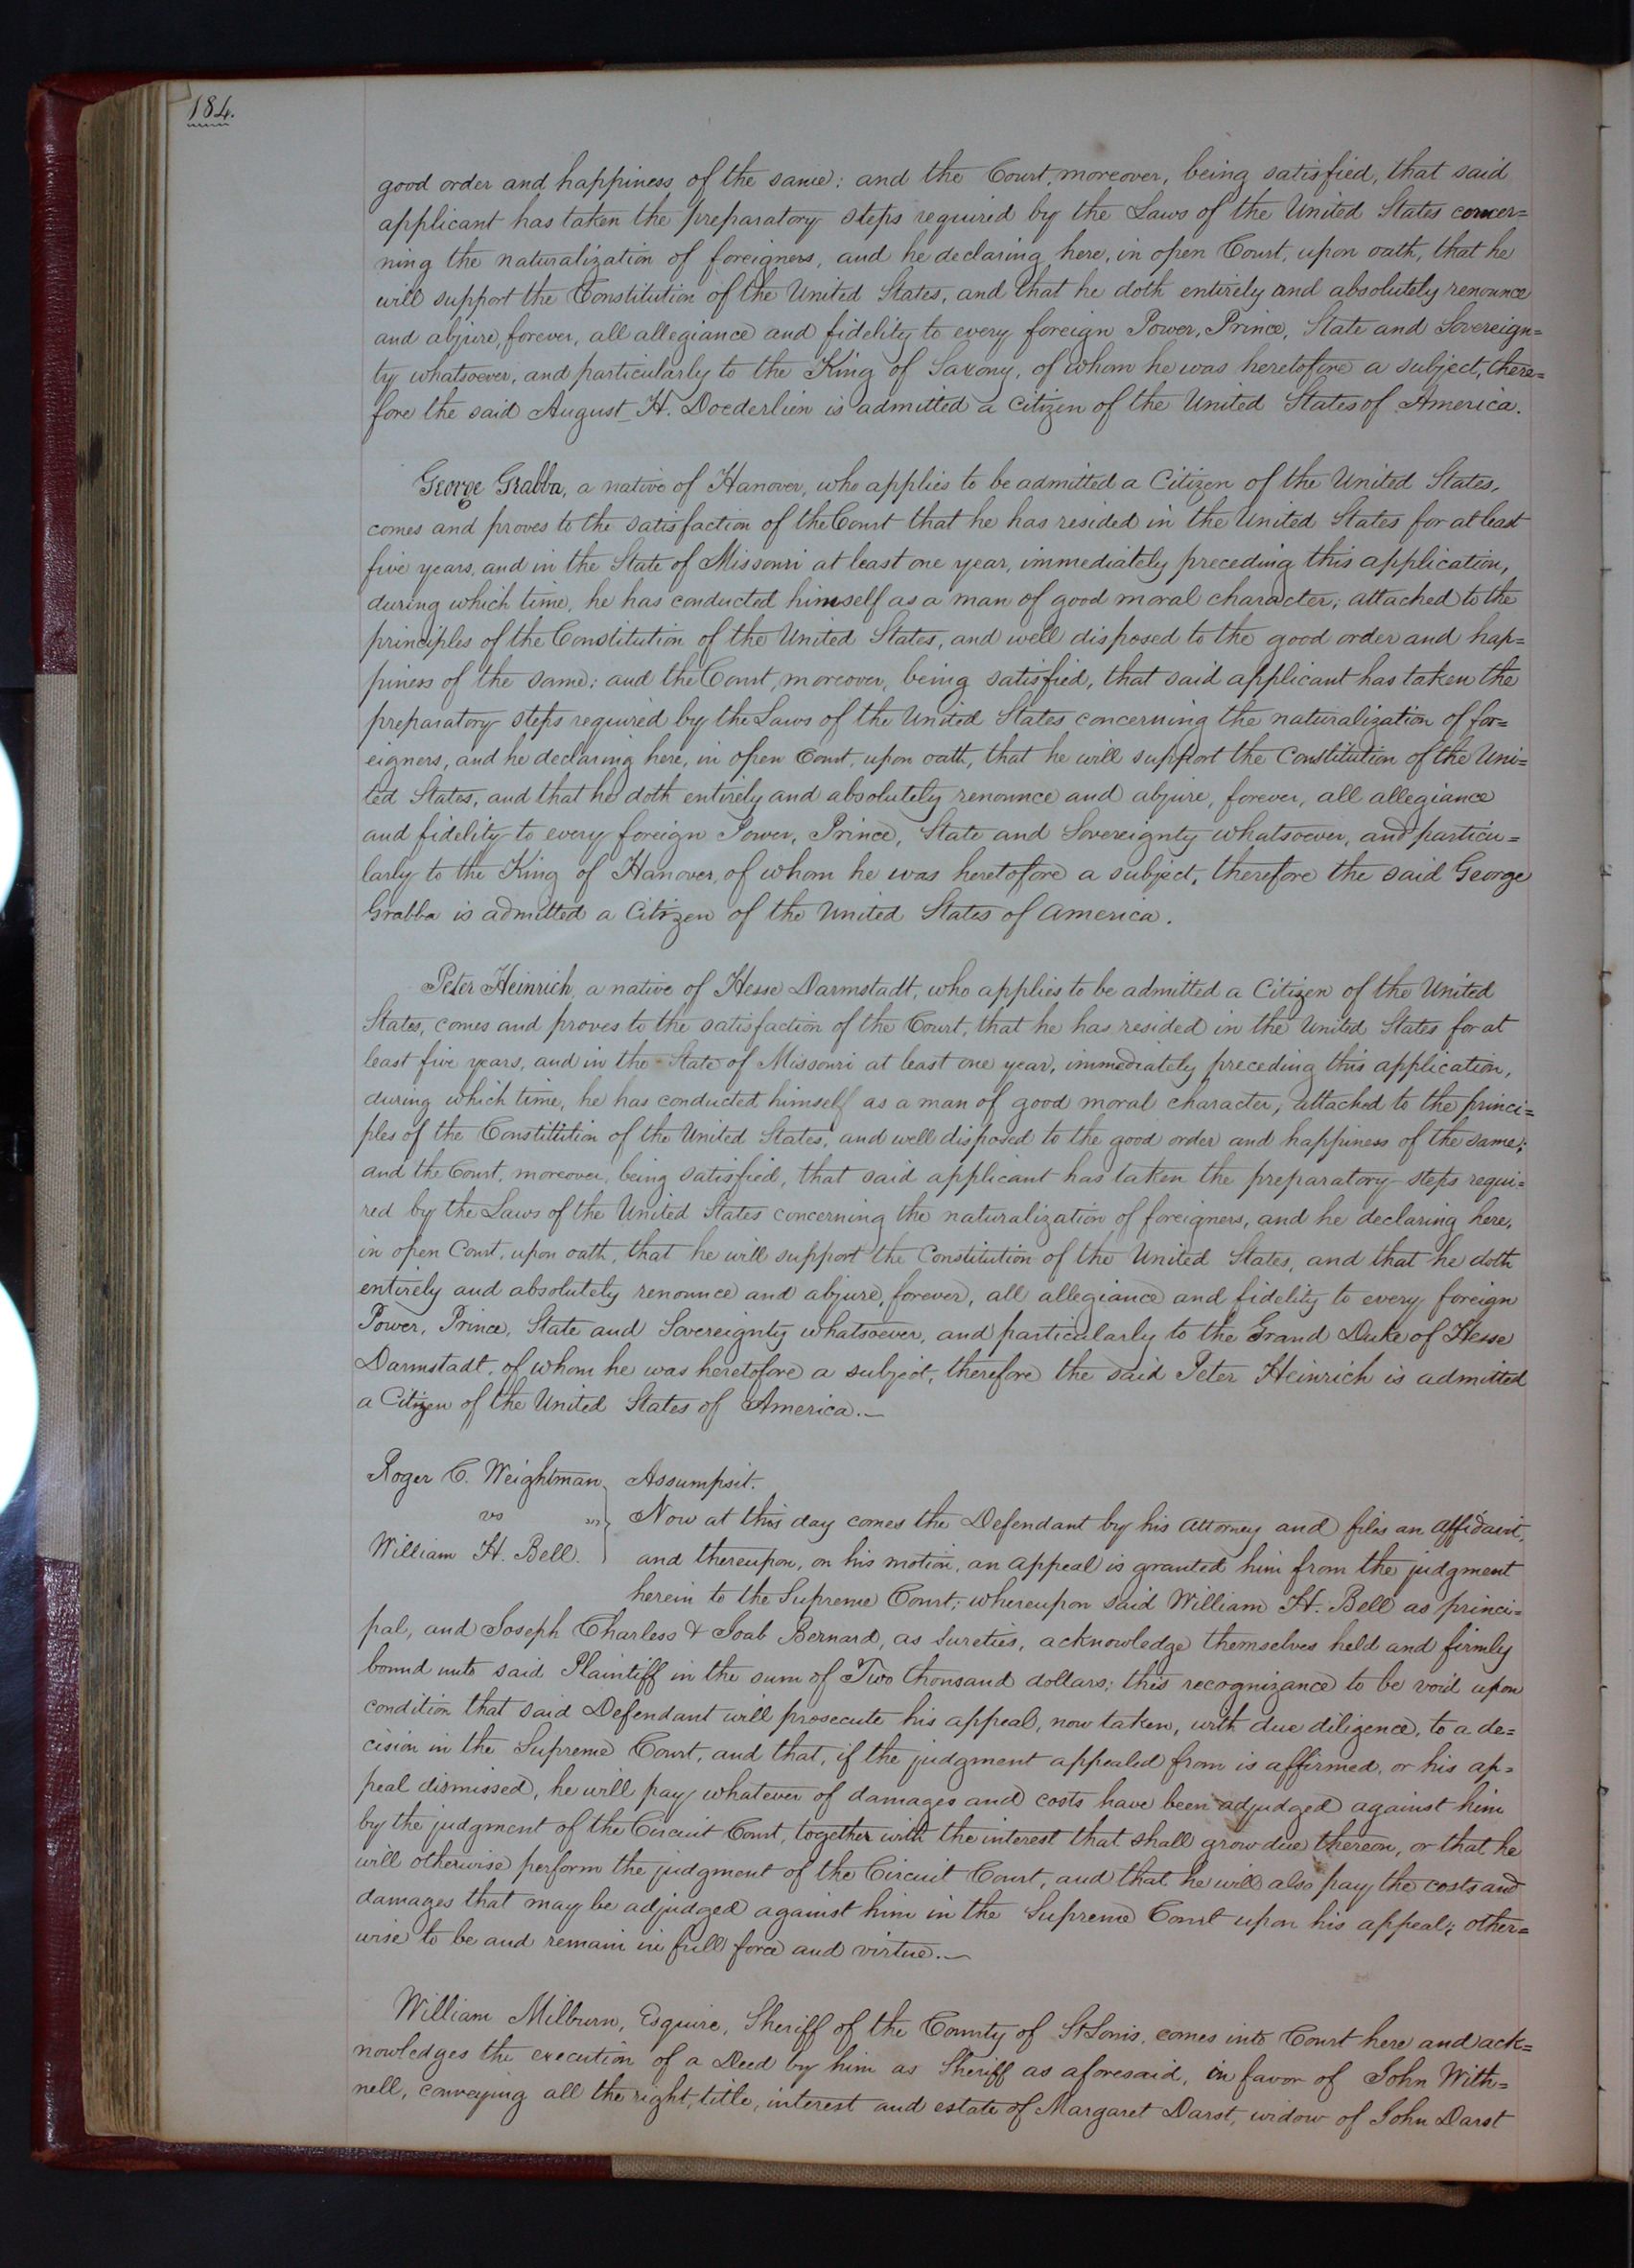 184.
good order and happiness of the same; and the Court, moreover, being satisfied, that said
applicant has taken the preparatory steps required by the Laws of the United States concer=
ning the naturalization of foreigners, and he declaring here, in open Court, upon oath, that he
will support the Constitution of the United States, and that he doth entirely and absolutely renounce
and abjure, forever, all allegiance and fidelity to every foreign Power, Prince, State and Sovereign=
ty whatsoever, and particularly to the King of Saxony, of whom he was heretofore a subject, there=
fore the said August H. Doederlien is admitted a Citizen of the United States of America.
George Grabba, a native of Hanover, who applies to be admitted a Citizen of the United States,
comes and proves to the satisfaction of the Court that he has resided in the United States for at least
five years, and in the State of Missouri at least one year, immediately preceding this application,
during which time, he has conducted himself as a man of good moral character, attached to the
principles of the Constitution of the United States, and well disposed to the good order and hap=
piness of the same; and the Court, moreover, being satisfied, that said applicant has taken the
preparatory steps required by the Laws of the United States concerning the naturalization of for=
eigners, and he declaring here, in open Court, upon oath, that he will support the Constitution of the Uni=
ted States, and that he doth entirely and absolutely renounce and abjure, forever, all allegiance
and fidelity to every foreign Power, Prince, State and Sovereignty whatsoever, and particu=
larly to the King of Hanover, of whom he was heretofore a subject, therefore the said George
Grabba is admitted a Citizen of the United States of America.
Peter Heinrich, a native of Hesse Darmstadt, who applies to be admitted a Citizen of the United
States, comes and proves to the satisfaction of the Court, that he has resided in the United States for at
least five years, and in the State of Missouri at least one year, immediately preceding this application,
during which time, he has conducted himself as a man of good moral character, attached to the princi=
ples of the Constitution of the United States, and well disposed to the good order and happiness of the same;
and the Court, moreover, being satisfied, that said applicant has taken the preparatory steps requi=
red by the Laws of the United States concerning the naturalization of foreigners, and he declaring here,
in open Court, upon oath, that he will support the Constitution of the United States, and that he doth
entirely and absolutely renounce and abjure, forever, all allegiance and fidelity to every foreign
Power, Prince, State and Sovereignty whatsoever, and particularly to the Grand Duke of Hesse
Darmstadt, of whom he was heretofore a subject, therefore the said Peter Heinrich is admitted
a Citizen of the United States of America.—
Roger C. Weightman } Assumpsit.
vs } Now at this day comes the Defendant by his Attorney and files an affidavit,
William H. Bell. } and thereupon, on his motion, an appeal is granted him from the judgment
herein to the Supreme Court; whereupon said William H. Bell as princi=
pal, and Joseph Charless & Joab Bernard, as sureties, acknowledge themselves held and firmly
bound unto said Plaintiff in the sum of Two thousand dollars; this recognizance to be void upon
condition that said Defendant will prosecute his appeal, now taken, with due diligence, to a de=
cision in the Supreme Court, and that, if the judgment appealed from is affirmed, or his ap=
peal dismissed, he will pay whatever of damages and costs have been adjudged against him
by the judgment of the Circuit Court, together with the interest that shall grow due thereon, or that he
will otherwise perform the judgment of the Circuit Court, and that he will also pay the costs and
damages that may be adjudged against him in the Supreme Court upon his appeal; other=
wise to be and remain in full force and virtue.—
William Milburn, Esquire, Sheriff of the County of St Louis, comes into Court here and ack=
nowledges the execution of a Deed by him as Sheriff as aforesaid, in favor of John With=
nell, conveying all the right, title, interest and estate of Margaret Darst, widow of John Darst